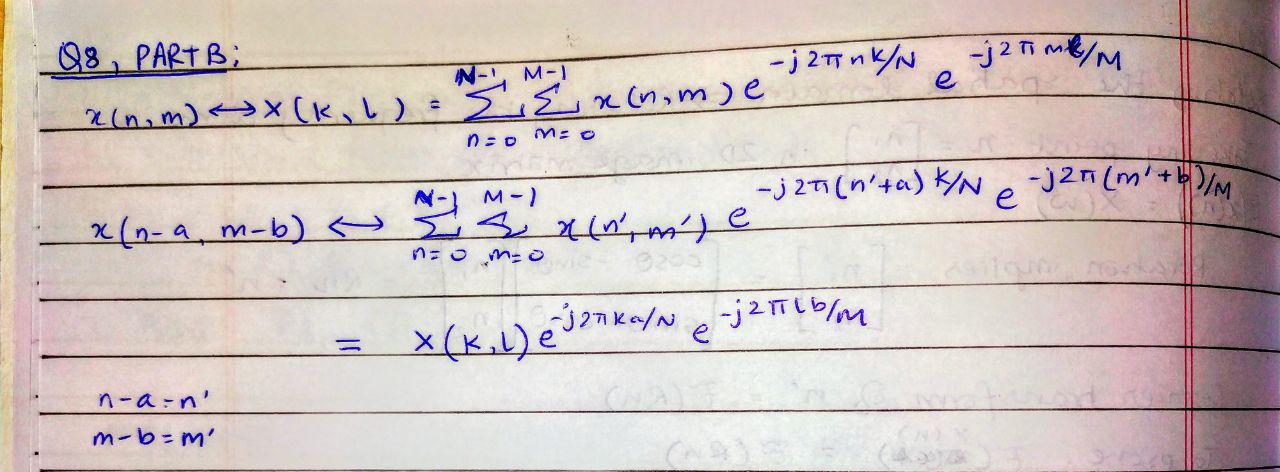 Q8, PART B;
x(n,m) ↔ X(k,l) = \sum_{n=0}^{N-1} \sum_{m=0}^{M-1} x(n,m) e^{-j2πnk/N} e^{-j2πml/M}
x(n-a, m-b) ↔ \sum_{n=0}^{N-1} \sum_{m=0}^{M-1} x(n',m') e^{-j2π(n'+a)k/N} e^{-j2π(m'+b)/M}
= X(k,l) e^{-j2πka/N} e^{-j2πlb/M}
n-a=n'
m-b=m'